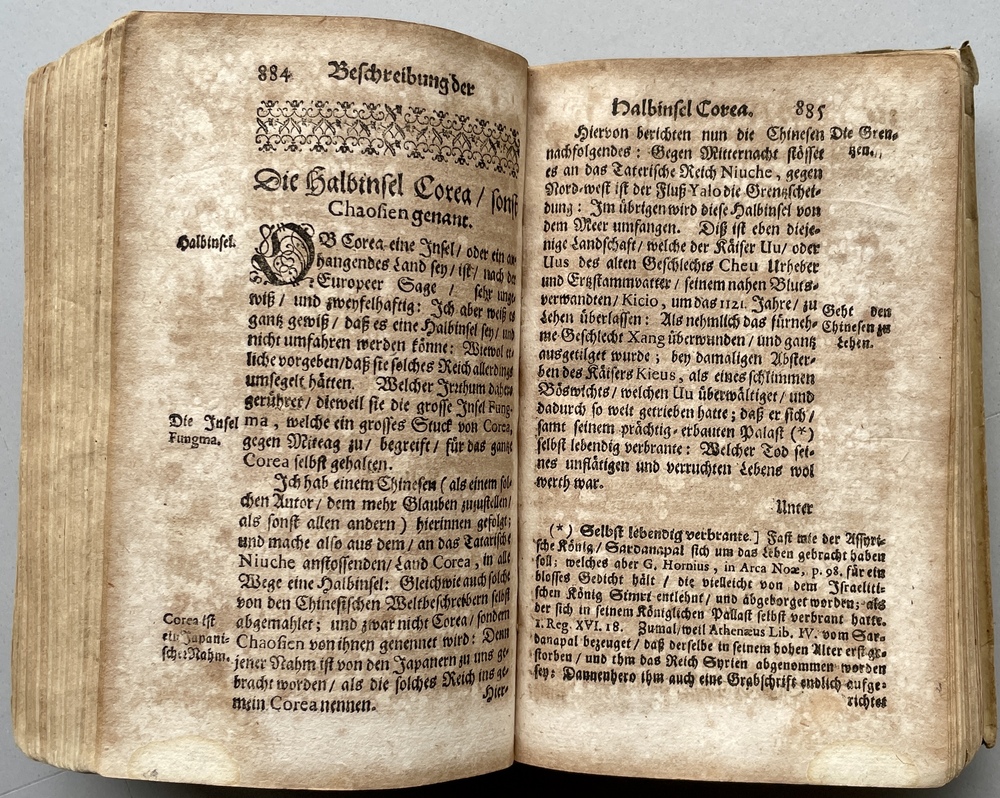 884 Beschreibung der
Die Halbinsel Corea / sonst
Chaosien genant.
Halbinsel.
OB Corea eine Insel / oder ein an-
hangendes Land sey / ist / nach der
Europeer Sage / sehr unge-
wiß / und zweyfelhaftig: Ich aber weiß es
gantz gewiß / daß es eine Halbinsel sey / und
nicht umfahren werden könne: Wiewol et-
liche vorgeben / daß sie solches Reich allerdings
umsegelt hätten. Welcher Irrthum daher
gerühret / dieweil sie die grosse Insel Fung-
Die Insel
Fungma.
ma, welche ein grosses Stuck von Corea,
gegen Mittag zu / begreift / für das gantz
Corea selbst gehalten.
Ich hab einem Chinesen (als einem sol-
chen Autor / dem mehr Glauben zuzustellen /
als sonst allen andern) hierinnen gefolgt;
und mache also aus dem / an das Tatarische
Niuche anstossenden / Land Corea, in alle
Wege eine Halbinsel: Gleichwie auch solche
von den Chinesischen Weltbeschreibern selbst
abgemahlet; und zwar nicht Corea / sondern
Corea ist
ein Japani-
scher Nahm.
Chaosien von ihnen genennet wird: Denn
jener Nahm ist von den Japanern zu uns ge-
bracht worden / als die solches Reich ins ge-
mein Corea nennen.
Hier-
Halbinsel Corea. 885
Hiervon berichten nun die Chinesen
Die Gren-
tzen.
nachfolgendes: Gegen Mitternacht stösset
es an das Taterische Reich Niuche, gegen
Nord-west ist der Fluß Yalo die Grentzschei-
dung: Im übrigen wird diese Halbinsel von
dem Meer umfangen. Diß ist eben dieje-
nige Landschaft / welche der Käiser Uu / oder
Uus des alten Geschlechts Cheu Urheber
und Ertzstammvatter / seinem nahen Bluts-
verwandten / Kicio, um das 1121. Jahre / zu
Geht den
Chinesen zu
Lehen.
Lehen überlassen: Als nehmlich das fürneh-
me Geschlecht Xang überwunden / und gantz
ausgetilget wurde; bey damaligen Abster-
ben des Käisers Kieus, als eines schlimmen
Böswichts / welchen Uu überwältiget / und
dadurch so weit getrieben hatte; daß er sich /
samt seinem prächtig-erbauten Palast (*)
selbst lebendig verbrante: Welcher Tod sei-
nes unflätigen und verruchten Lebens wol
werth war.
Unter
(*) Selbst lebendig verbrante.] Fast wie der Assyri-
sche König / Sardanapal sich um das Leben gebracht haben
soll; welches aber G. Hornius, in Arca Noæ, p. 98. für ein
blosses Gedicht hält / die vielleicht von dem Israeliti-
schen König Simri entlehnt / und abgeborget worden; als
der sich in seinem Königlichen Pallast selbst verbrant hatte.
1. Reg. XVI. 18. Zumal / weil Athenæus Lib. IV. vom Sar-
danapal bezeuget / daß derselbe in seinem hohen Alter erst ge-
storben / und ihm das Reich Syrien abgenommen worden
sey: Dannenhero ihm auch eine Grabschrift endlich aufge-
richtet